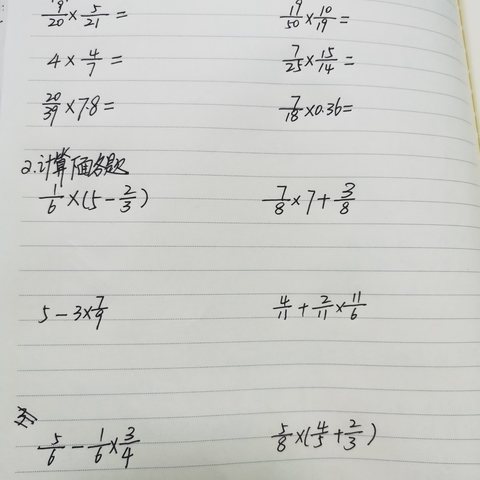 9/20×5/21= 19/50×10/19=
4×4/7= 7/25×15/14=
20/39×7.8= 7/18×0.36=
2.计算下面各题
1/6×(5-2/3) 7/8×7+3/8
5-3×7/9 4/11+2/11×11/6
5/6-1/6×3/4 5/8×(4/5+2/3)